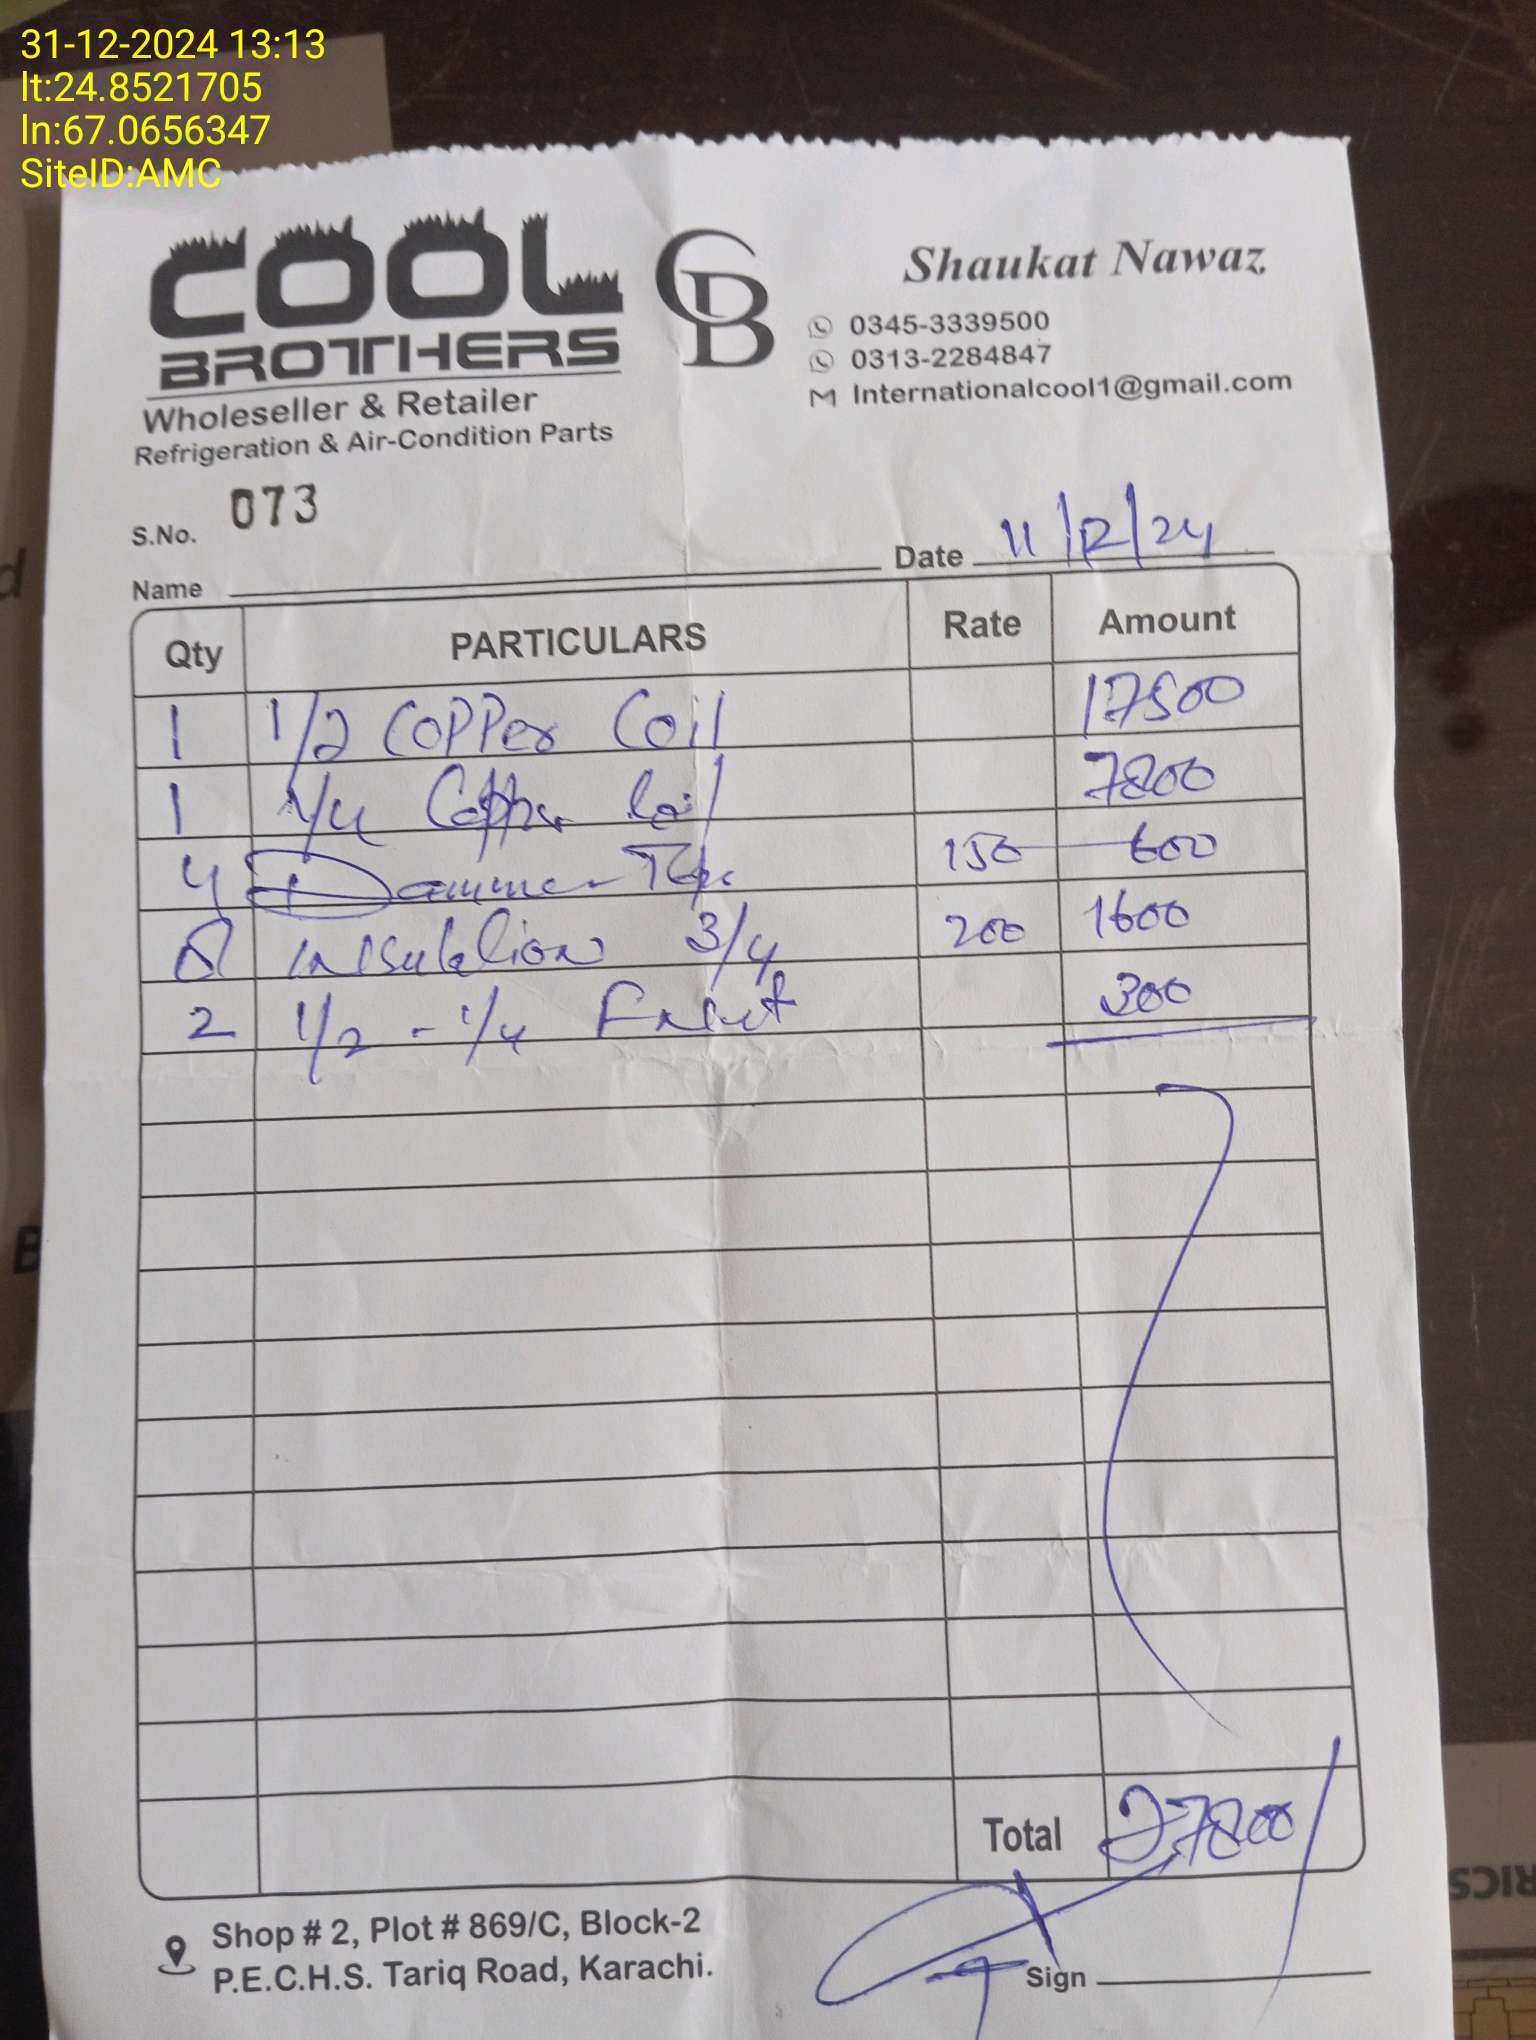 31-12-2024 13:13
lt:24.8521705
ln:67.0656347
SiteID:AMC
COOL BROTHERS
CB
Wholeseller & Retailer
Refrigeration & Air-Condition Parts
Shaukat Nawaz
0345-3339500
0313-2284847
Internationalcool1@gmail.com
S.No. 073
Name Date 11/12/24
Qty PARTICULARS Rate Amount
1 1/2 Copper Coil 17500
1 1/4 Copper Coil 7800
4 Dammer Tape 150 600
8 insulation 3/4 200 1600
2 1/2 - 1/4 300
Total 27800/
Shop # 2, Plot # 869/C, Block-2
P.E.C.H.S. Tariq Road, Karachi.
Sign
RICS